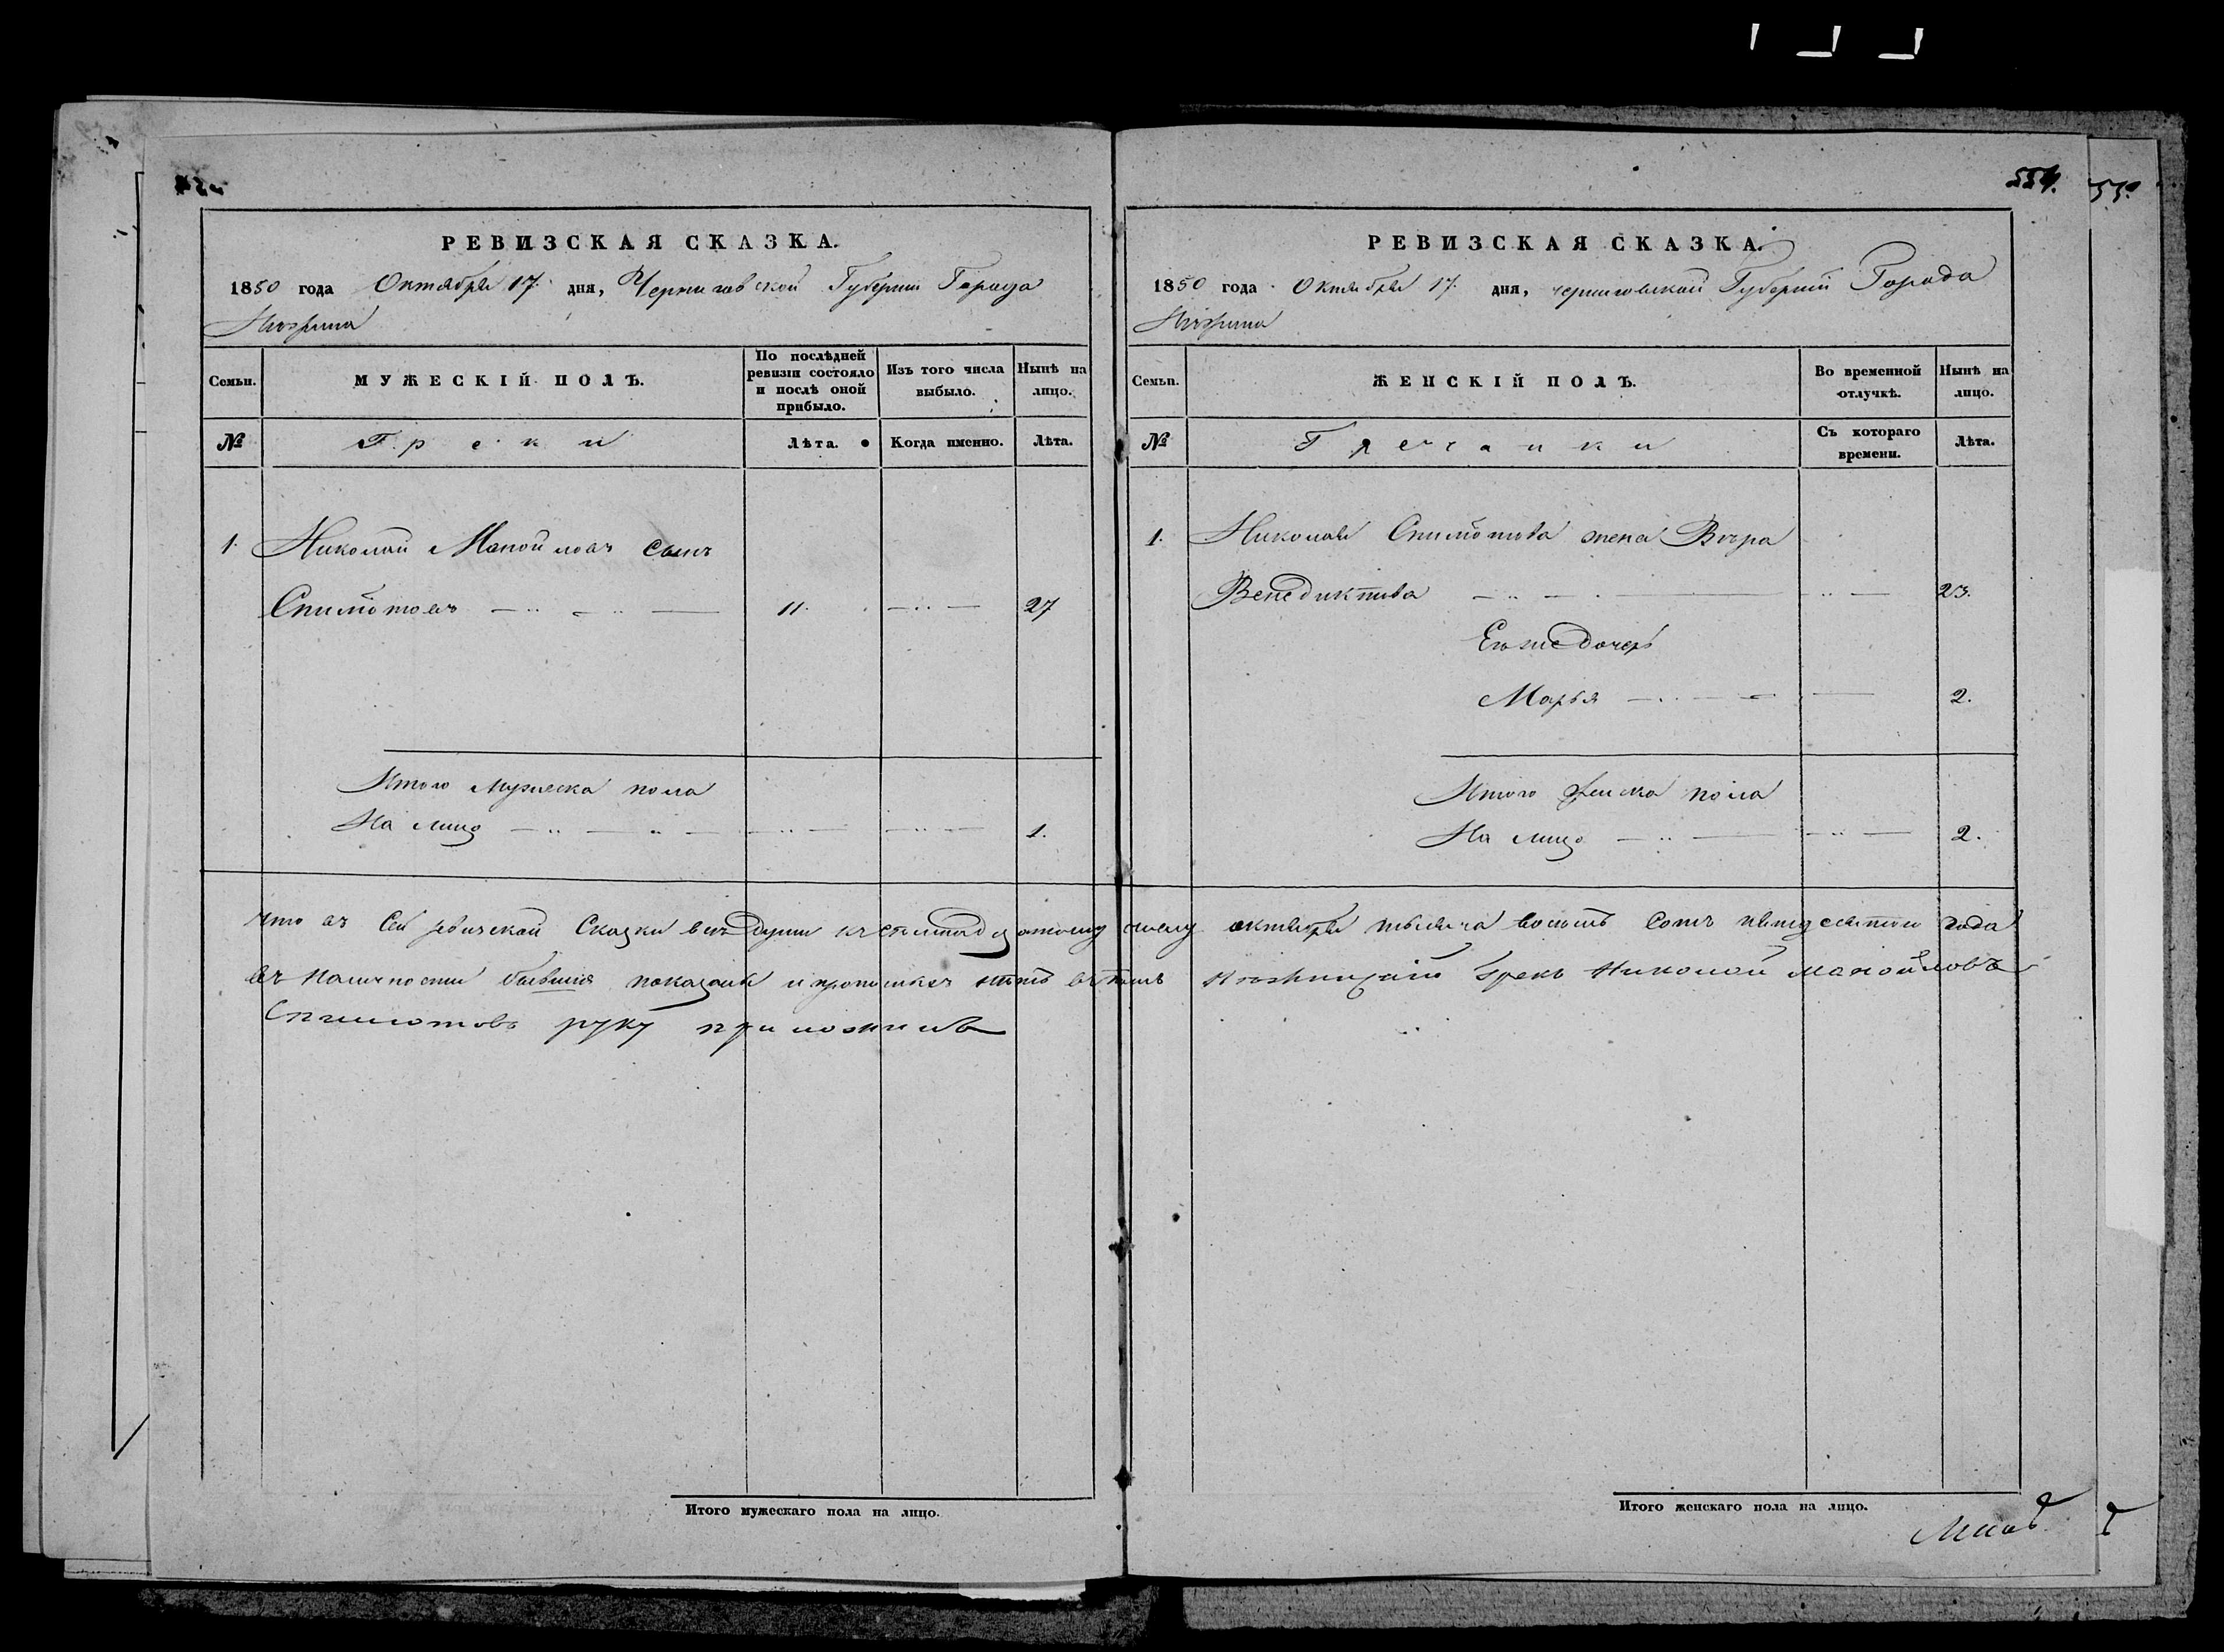 554.
РЕВИЗСКАЯ СКАЗКА.
1850 года Октября 17. дня, Черниговской Губернии Города
Нѣжина
Семьи.
МУЖЕСКІЙ ПОЛЪ.
По послѣдней ревизіи состояло и послѣ оной прибыло.
Изъ того числа выбыло.
Нынѣ на лицо.
№
Греки
Лѣта.
Когда именно.
Лѣта.
1. Николай Манойловъ сынъ
Спилiотовъ 11. 27
Итого мужеска пола
На лицо 1.
РЕВИЗСКАЯ СКАЗКА.
1850 года Октября 17. дня, Черниговской Губерніи Города
Нѣжина
Семьи.
ЖЕНСКІЙ ПОЛЪ.
Во временной отлучкѣ.
Нынѣ на лицо.
№
Гречанки
Съ котораго времени.
Лѣта.
1. Николая Спилiотова жена Вѣра
Венедиктова 23.
Его же дочерь
Марья 2.
Итого женска пола
На лицо 2.
Что въ сей ревизской Сказки всѣ души къ числу октября тысяча восемь сотъ пятдесятого года
въ наличности бывшія показаны и пропишныхъ нѣтъ въ томъ Нѣжинскій грекъ Николай Манойловъ
Спилиотовъ руку приложилъ
Итого мужескаго пола на лицо.
Итого женскаго пола на лицо.